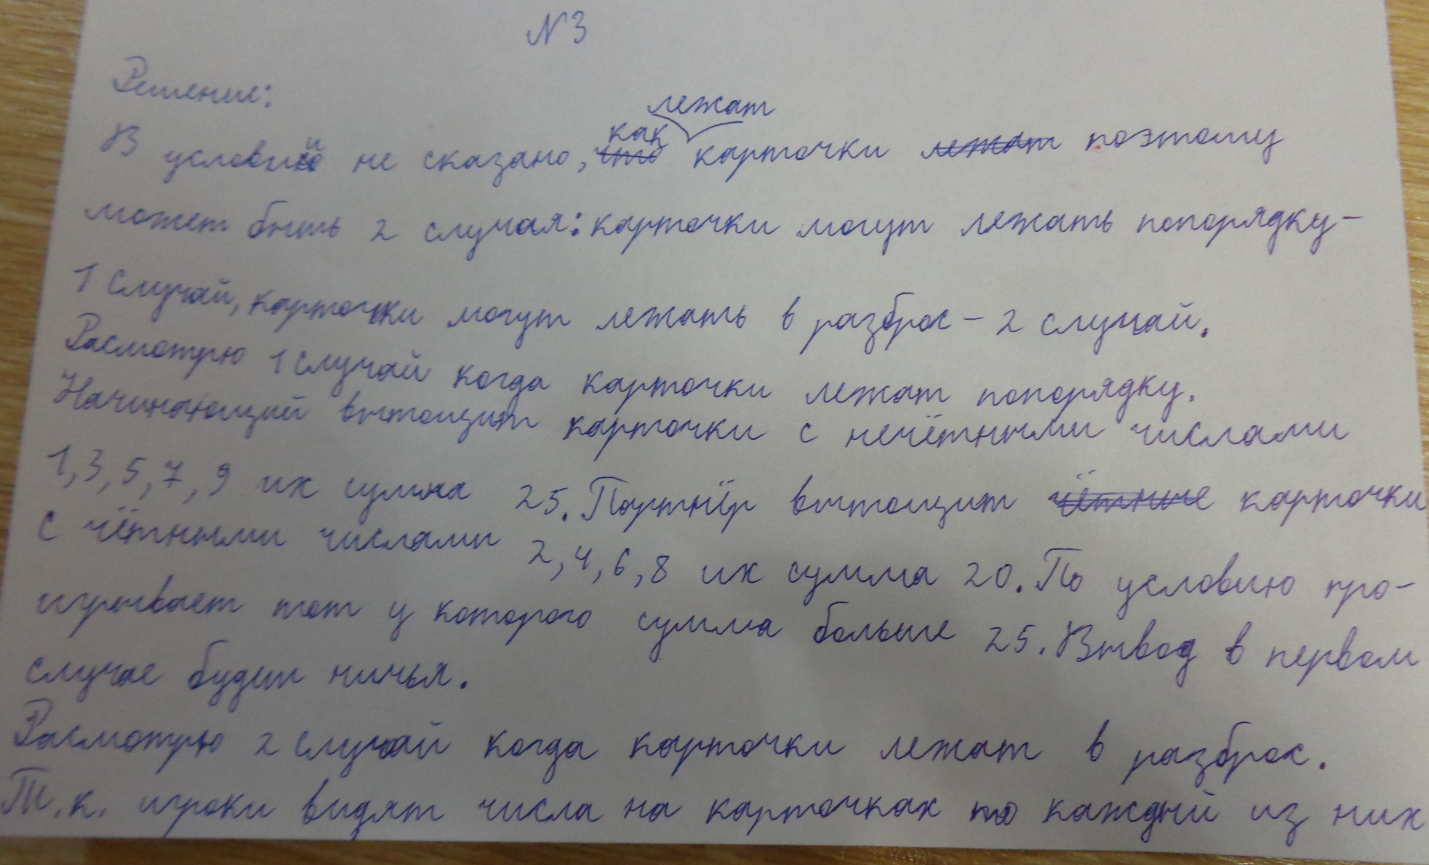 N3
Решение:
В условии не сказано, как лежат карточки поэтому
может быть 2 случая: карточки могут лежать попорядку-
1 случай, карточки могут лежать в разброс - 2 случай.
Расмотрю 1 случай когда карточки лежат попорядку.
Начинающий вытощит карточки с нечётными числами
1,3,5,7,9 их сумма 25. Партнёр вытощит чётные карточки
с чётными числами 2,4,6,8 их сумма 20. По условию про-
игрывает тот у которого сумма больше 25. Вывод в первом
случае будет ничья.
Расмотрю 2 случай когда карточки лежат в разброс.
Т.к. игроки видят числа на карточках то каждый из них